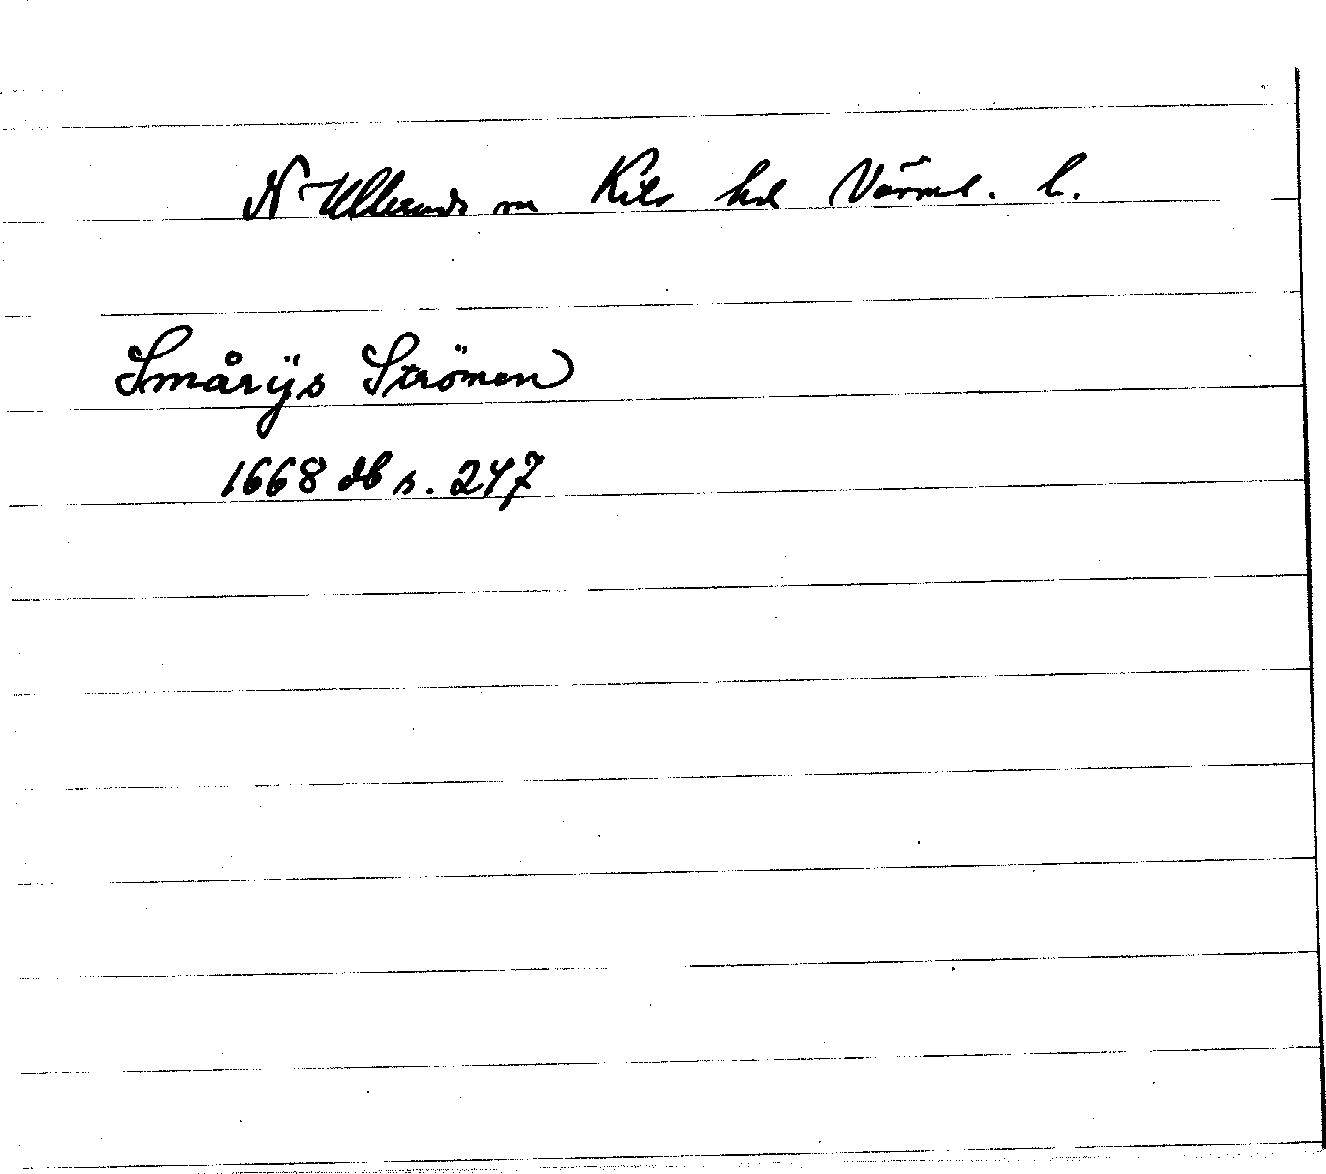 N Ullerud sn Kils hd Värml. l.
Smårÿs Strömen
1668 db s. 247